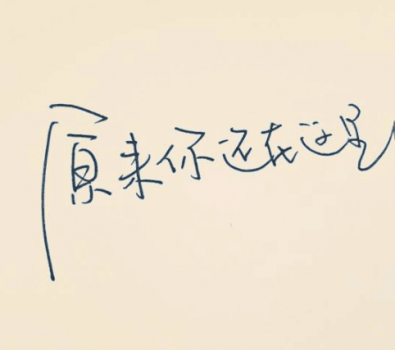 原来你还在这里